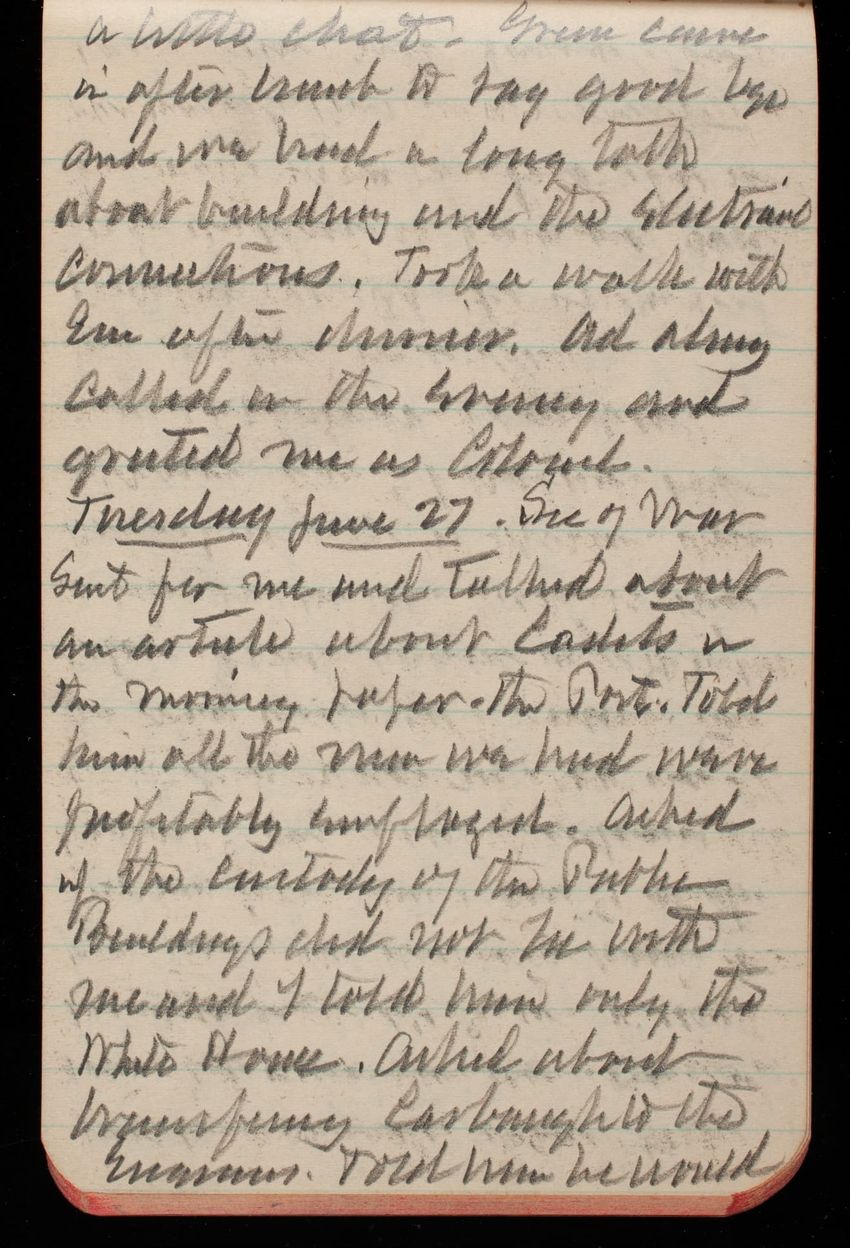 a little chat. Green came
in after lunch to say good bye
and we had a long talk
about building and the electric
connections. Took a walk with
Em after dinner. Ad
called in the Evening and
greeted me as Colonel.
Tuesday June 27. Sec of War
Sent for me and Talked about
an article about Cadets in
the morning paper - the Post. Told
him all the men we had were
profitably employed. Asked
if the custody of the Public
Buildings did not lie with
me and I told him only the
White House. Asked about
transferring Carbaugh to the
Engineers. Told him he would